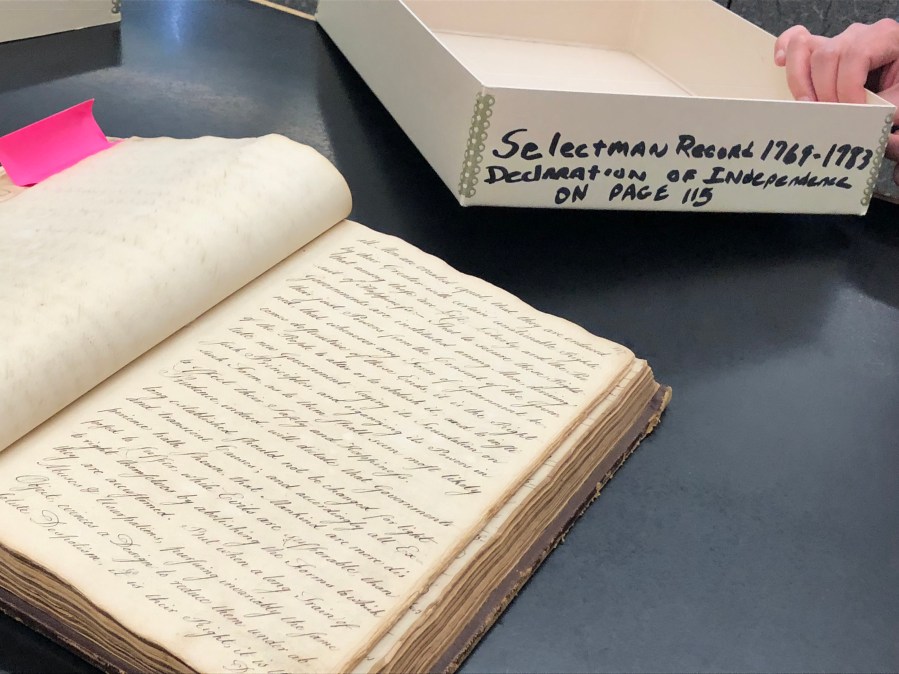 Selectman Record 1769-1783
Declaration of Independence
on page 115
all Men are created equal, that they are endowed
by their Creator with certain unalienable Rights
that among these are Life, Liberty and the Pur-
suit of Happiness. That to secure these Rights
Governments are instituted among Men, deriving
their just Powers from the Consent of the
and that whensoever any Form of Government be-
comes destructive of these Ends, it is the Right
of the People to alter or to abolish it, and to insti-
tute new Government, laying its Foundation on
such Principles and organizing its Powers in
such Form, as to them shall seem most likely
to effect their Safety and Happiness.
Prudence indeed will dictate that Governments
long established, should not be changed for light
and transient Causes; and accordingly all Ex-
perience hath shewn, that Mankind are more dis
posed to suffer, while Evils are sufferable, than
to right themselves by abolishing the Forms to which
they are accustomed. But when a long Train of
Abuses & Usurpations, pursuing invariably the same
Object, evinces a Design to reduce them under ab
solute Despotism, it is their Right, it is